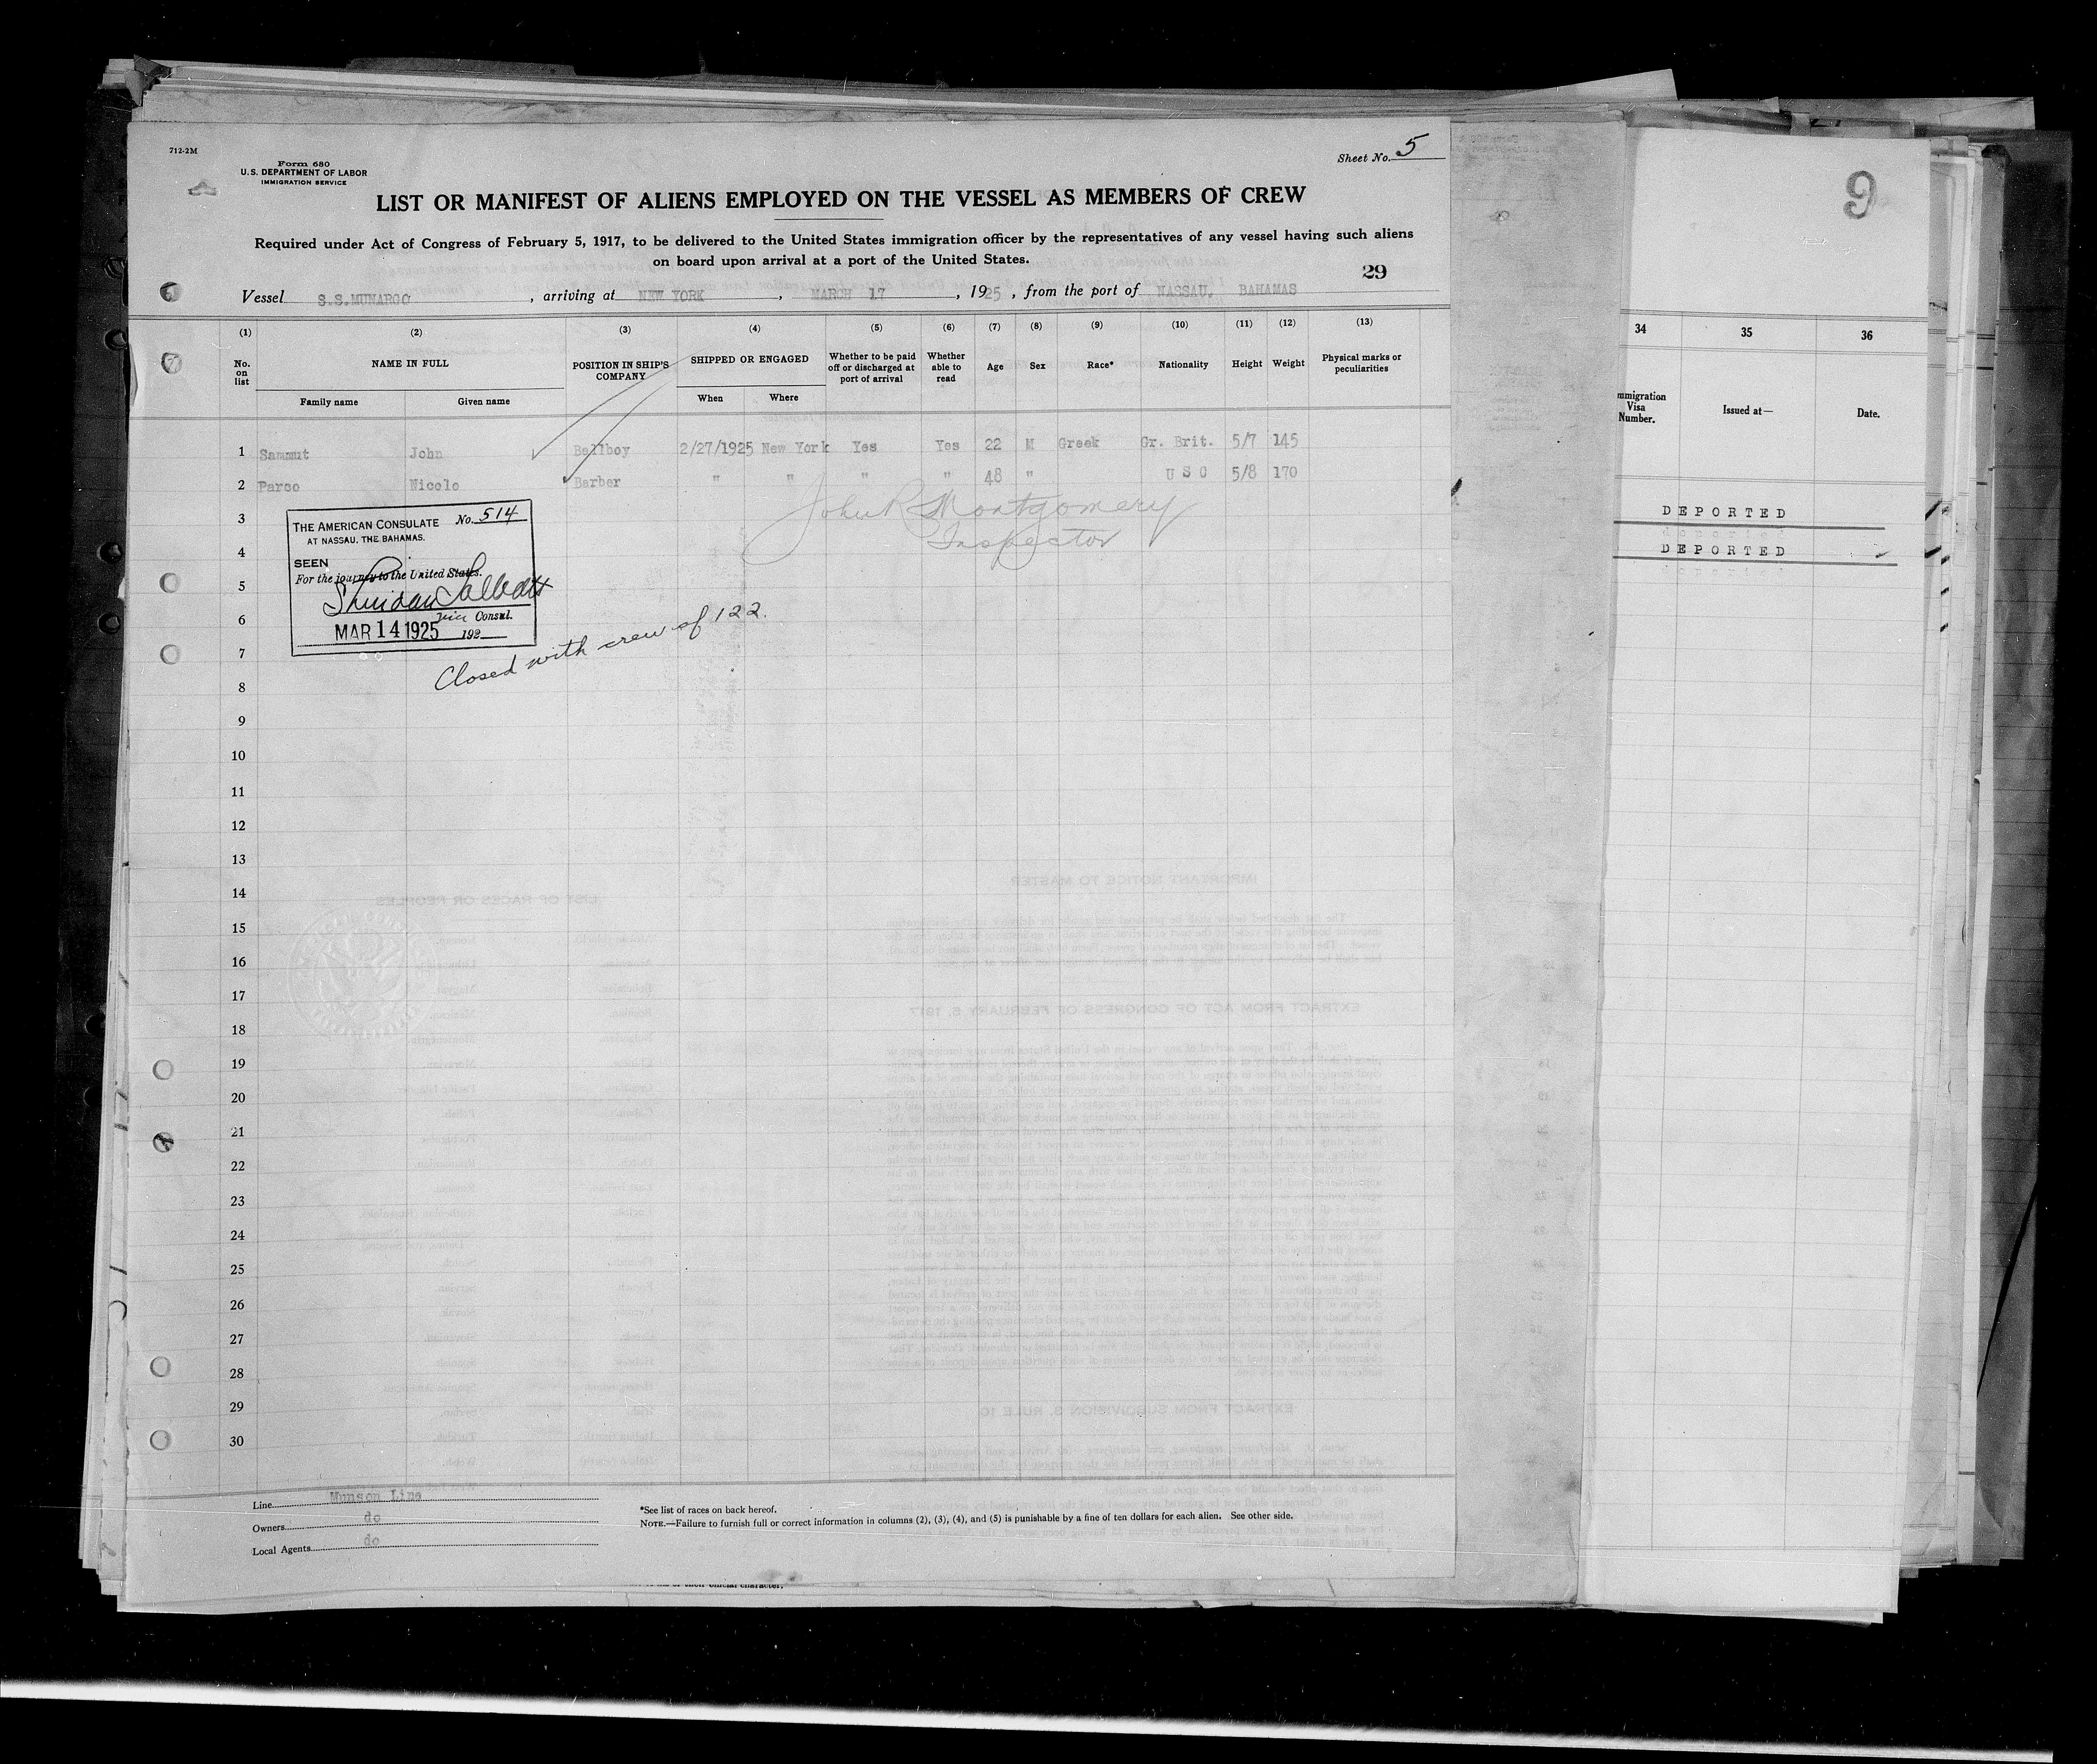 712-2M
Form 680
U.S. DEPARTMENT OF LABOR
IMMIGRATION SERVICE
Sheet No. 5
LIST OR MANIFEST OF ALIENS EMPLOYED ON THE VESSEL AS MEMBERS OF CREW
Required under Act of Congress of February 5, 1917, to be delivered to the United States immigration officer by the representatives of any vessel having such aliens
on board upon arrival at a port of the United States.
29
Vessel S.S.MUNARGO, arriving at NEW YORK, MARCH 17, 1925, from the port of NASSAU, BAHAMAS
(1) (2) (3) (4) (5) (6) (7) (8) (9) (10) (11) (12) (13)
No. on list NAME IN FULL Family name Given name POSITION IN SHIP'S COMPANY SHIPPED OR ENGAGED When Where Whether to be paid off or discharged at port of arrival Whether able to read Age Sex Race* Nationality Height Weight Physical marks or peculiarities
1 Sammut John Bellboy 2/27/1925 New York Yes Yes 22 M Greek Gr. Brit. 5/7 145
2 Parco Nicolo Barber " " " " 48 " U S C 5/8 170
John R Montgomery
Inspector
3
4
5
6
7
THE AMERICAN CONSULATE No. 514
AT NASSAU, THE BAHAMAS.
SEEN
For the journey to the United States.
Sheridan Talbott
Vice Consul.
MAR 14 1925 192
Closed with crew of 122.
8
9
10
11
12
13
14
15
16
17
18
19
20
21
22
23
24
25
26
27
28
29
30
Line Munson Line
Owners do
Local Agents do
*See list of races on back hereof.
NOTE.—Failure to furnish full or correct information in columns (2), (3), (4), and (5) is punishable by a fine of ten dollars for each alien. See other side.
9
34 35 36
mmigration Visa Number. Issued at— Date.
DEPORTED
DEPORTED